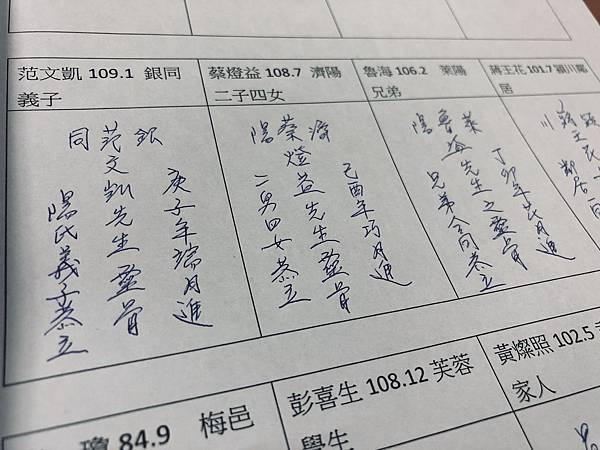 范文凱 109.1 銀同
義子
蔡燈益 108.7 濟陽
二子四女
魯海 106.2 萊陽
兄弟
蔣王花 101.7 潁川鄰
居
銀
同
庚子年瑞月進
范文凱先生靈骨
陽氏義子恭立
濟
陽
己酉年巧月進
蔡燈益先生靈骨
二男四女恭立
萊
陽
丁卯年花月進
魯海先生之靈骨
兄弟仝恭立
川
鄰居
84.9 梅邑
彭喜生 108.12 芙蓉
學生
黃燦照 102.5
家人